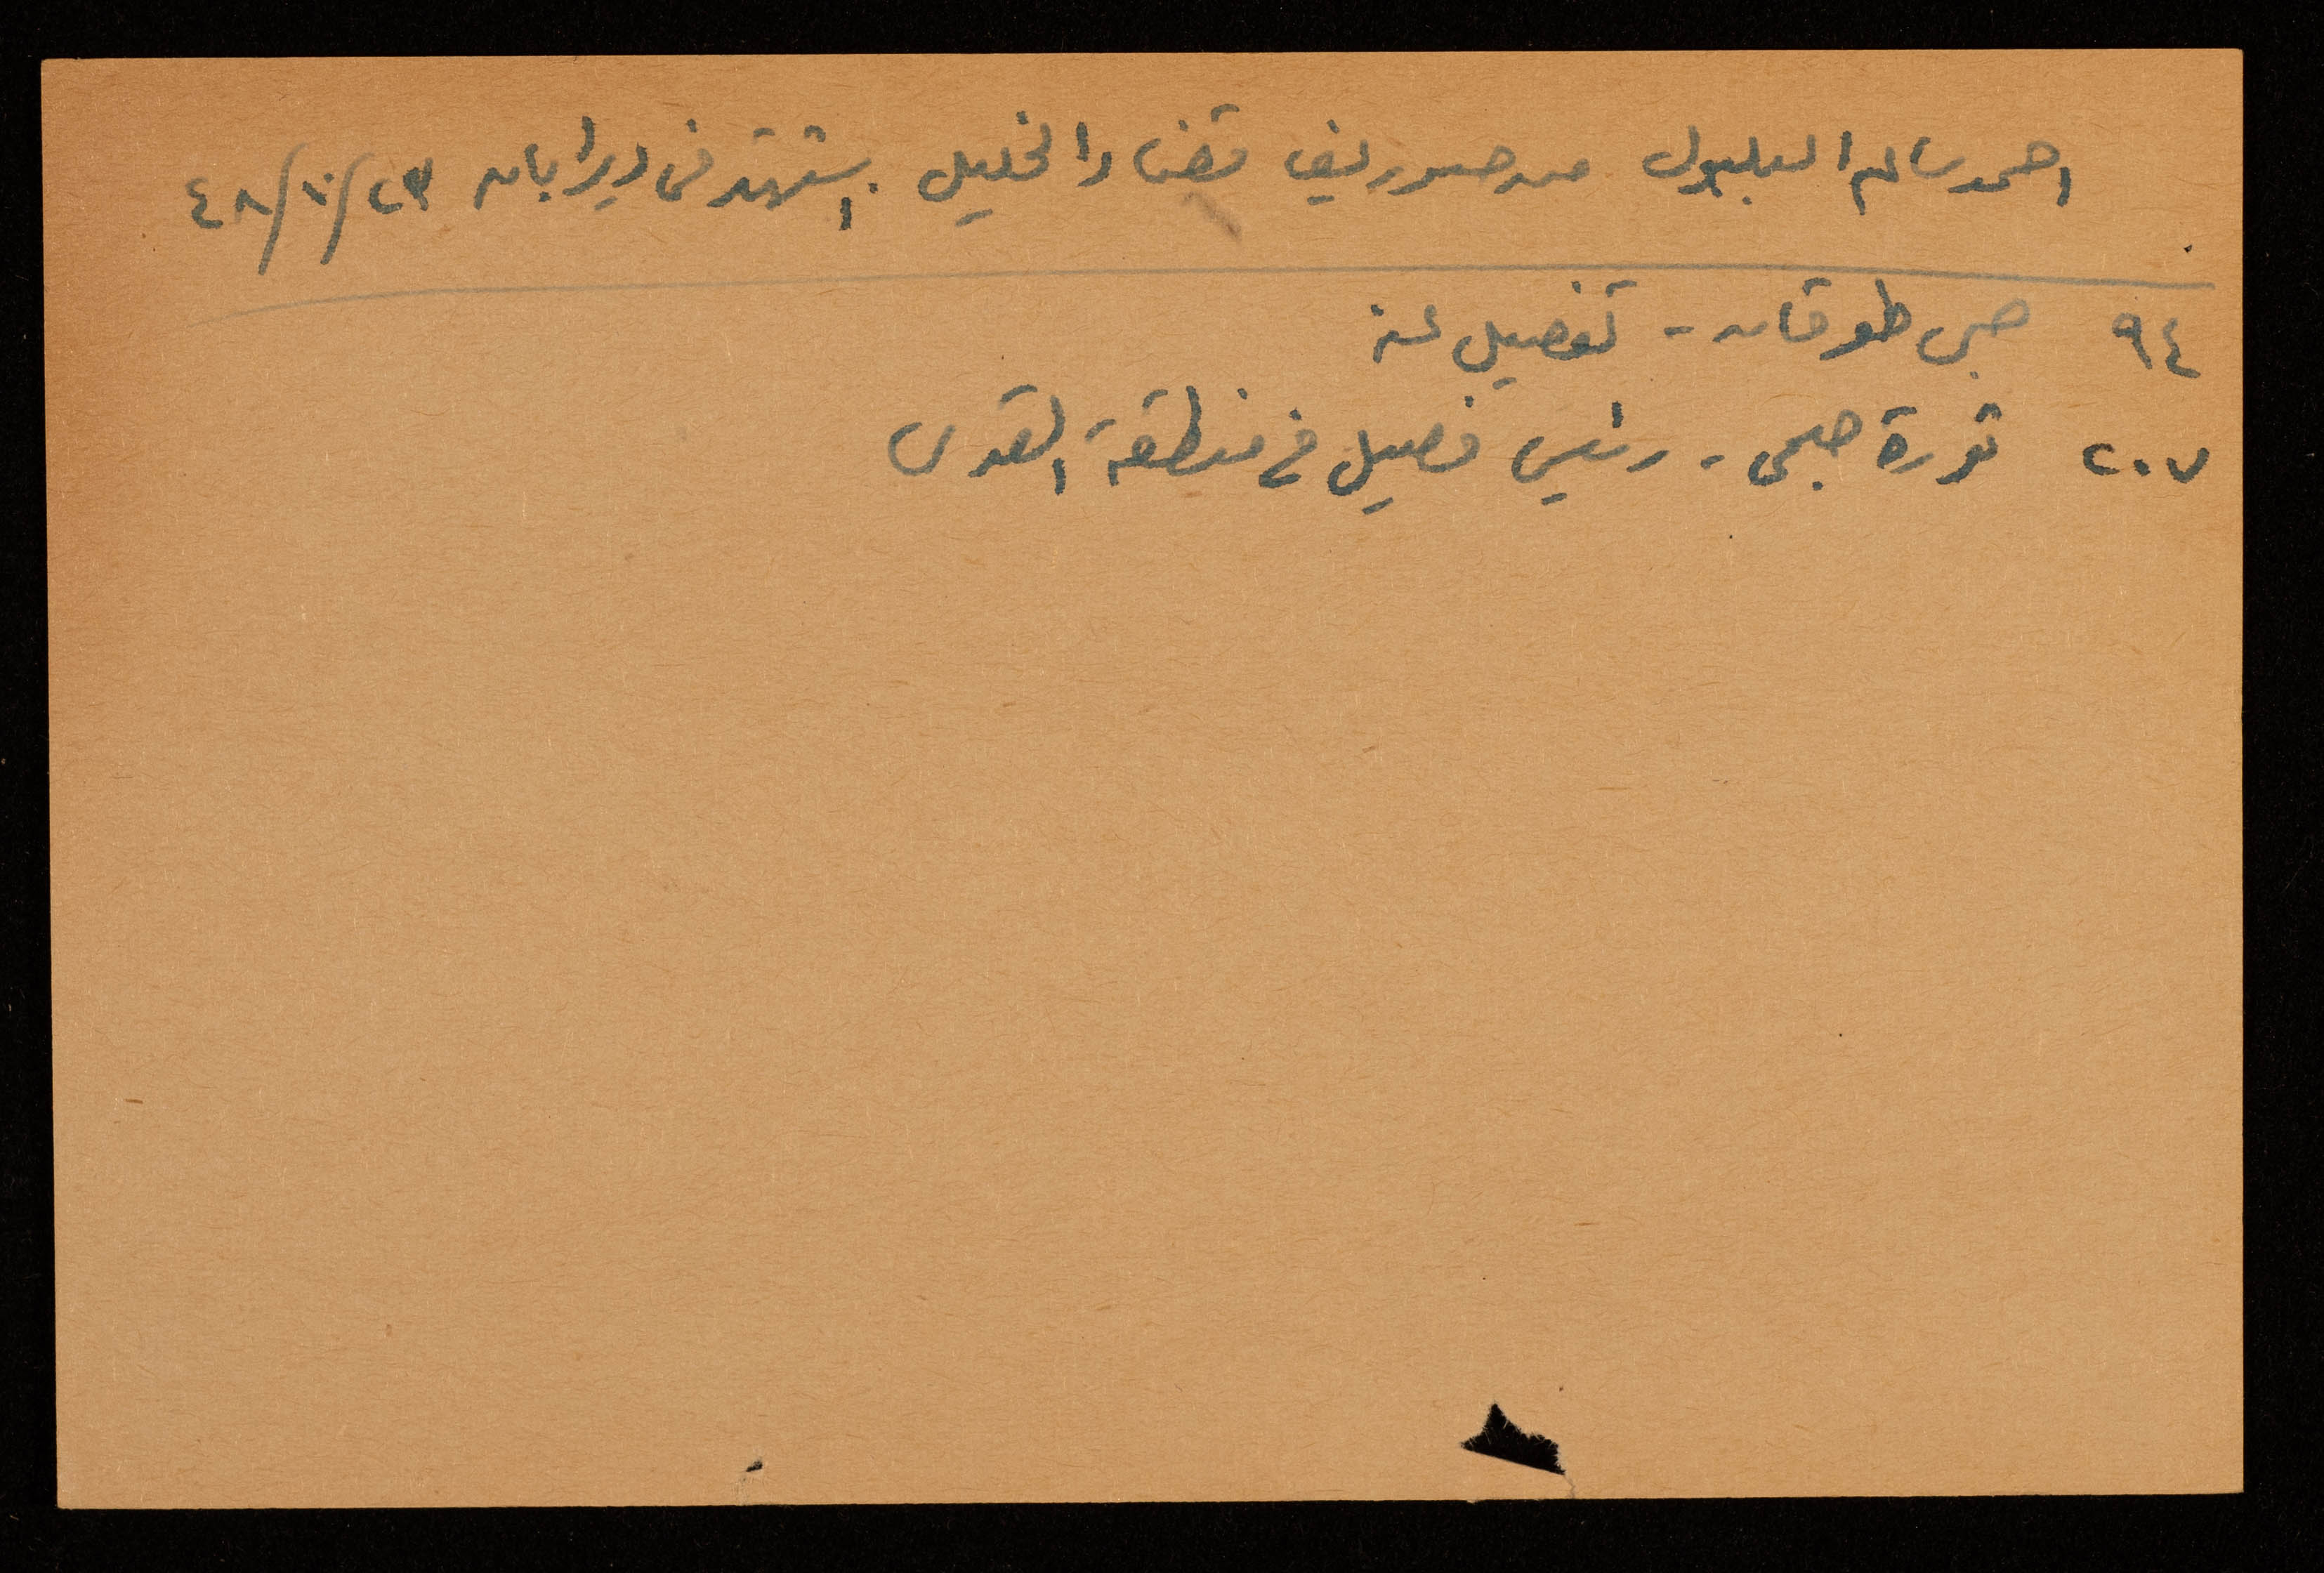 احمد سالم البلبول من صوريف قضاء الخليل. استشهد في دير ابان ٢٣/١٠/٤٨
٩٤ صبحي طوقان - تفصيل عنه
٢٠٧ ثورة صبحي - رئيس فصيل في منطقة القدس